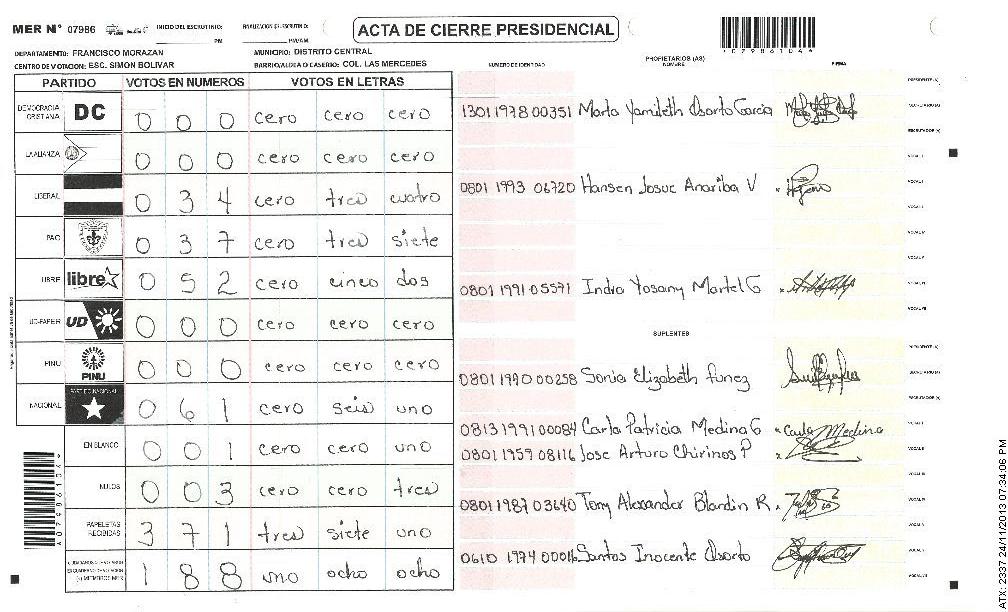 MER Nº 07986 INICIO DEL ESCRUTINIO: FINALIZACION DEL ESCRUTINIO:
PM PM/AM
ACTA DE CIERRE PRESIDENCIAL
DEPARTAMENTO: FRANCISCO MORAZAN MUNICIPIO: DISTRITO CENTRAL
CENTRO DE VOTACION: ESC. SIMON BOLIVAR BARRIO/ALDEA O CASERIO: COL. LAS MERCEDES
NUMERO DE IDENTIDAD PROPIETARIOS (AS) NOMBRE FIRMA
PARTIDO VOTOS EN NUMEROS VOTOS EN LETRAS
DEMOCRACIA CRISTIANA DC 0 0 0 cero cero cero
1301 1978 00351 Marta Yamileth Osorto Garcia
LA ALIANZA 0 0 0 cero cero cero
LIBERAL 0 3 4 cero tres cuatro
0801 1993 06720 Hansen Josue Anariba V
PAC 0 3 7 cero tres siete
LIBRE libre 0 5 2 cero cinco dos
0801 1991 05591 Indra Yosany Martel G
UD-FAPER UD 0 0 0 cero cero cero
SUPLENTES
PINU PINU 0 0 0 cero cero cero
0801 1990 00258 Sonia Elizabeth funez
NACIONAL PARTIDO NACIONAL 0 6 1 cero seis uno
0813 1991 00084 Carla Patricia Medina G Carla Medina
EN BLANCO 0 0 1 cero cero uno
0801 1959 08116 Jose Arturo Chirinos P
NULOS 0 0 3 cero cero tres
0801 1987 03640 Tony Alexander Blandin R.
PAPELETAS RECIBIDAS 3 7 1 tres siete uno
0610 1974 00016 Santos Inocente Osorto
1 8 8 uno ocho ocho
ATX: 2337 24/11/2013 07:34:06 PM